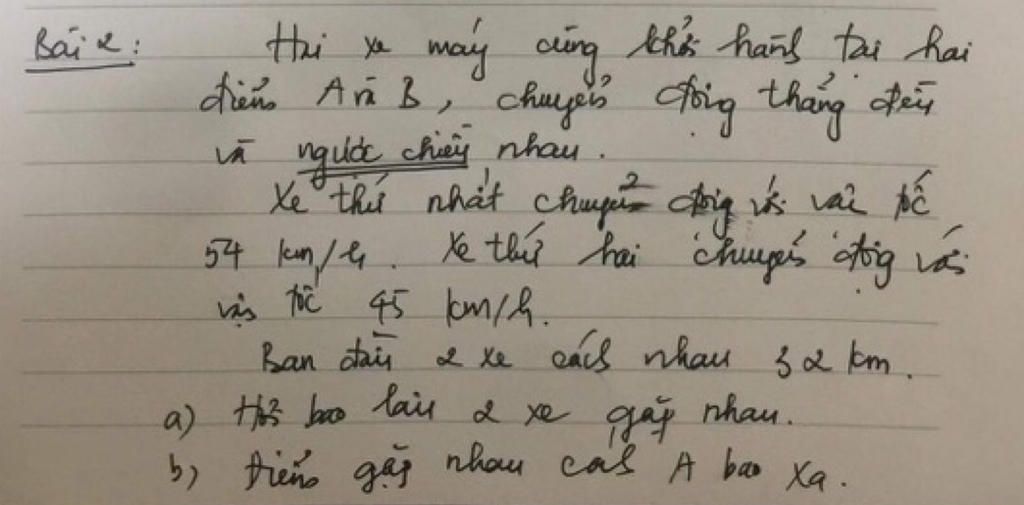 Bài 2: Hai xe máy cùng khởi hành tại hai
điểm A và B, chuyển động thẳng đều
và ngược chiều nhau.
Xe thứ nhất chuyển động với vận tốc
54 km/h. Xe thứ hai chuyển động với
vận tốc 45 km/h.
Ban đầu 2 xe cách nhau 32 km.
a) Hỏi bao lâu 2 xe gặp nhau.
b) Điểm gặp nhau cách A bao xa.